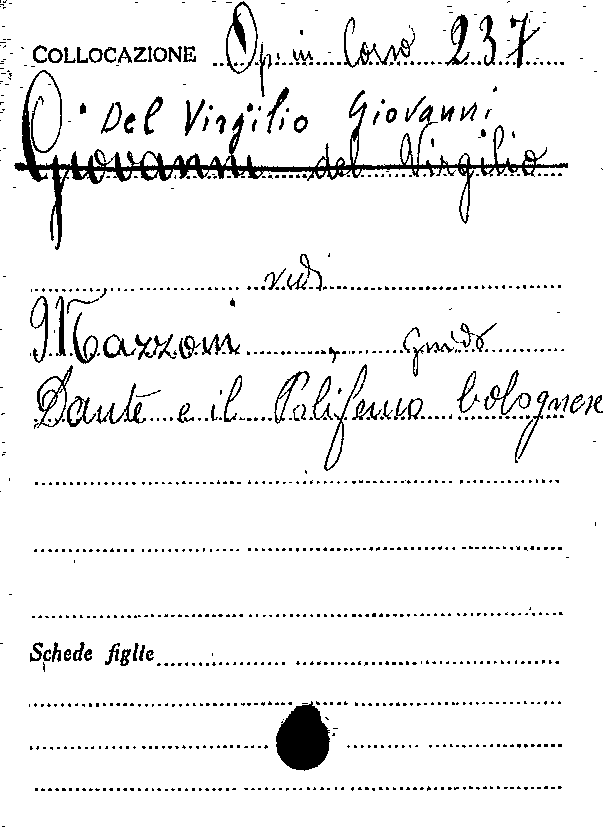 COLLOCAZIONE Op. in Corso 237
Del Virgilio Giovanni
Giovanni del Virgilio
vedi
Mazzoni, Guido
Dante e il Polifemo bolognese
Schede figlie